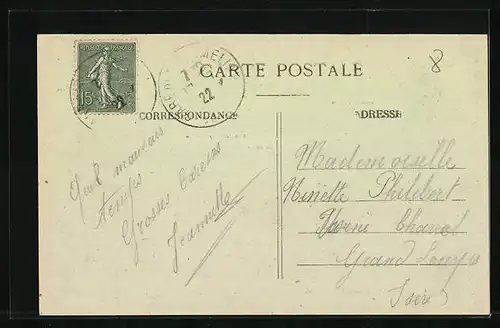 RÉPUBLIQUE FRANÇAISE
15
22
CARTE POSTALE
8
CORRESPONDANCE
ADRESSE
Quel mauvais
temps
Grosses Caresses
Jeannette
Mademoiselle
Ninette Philibert
Grand Lemps
Isère